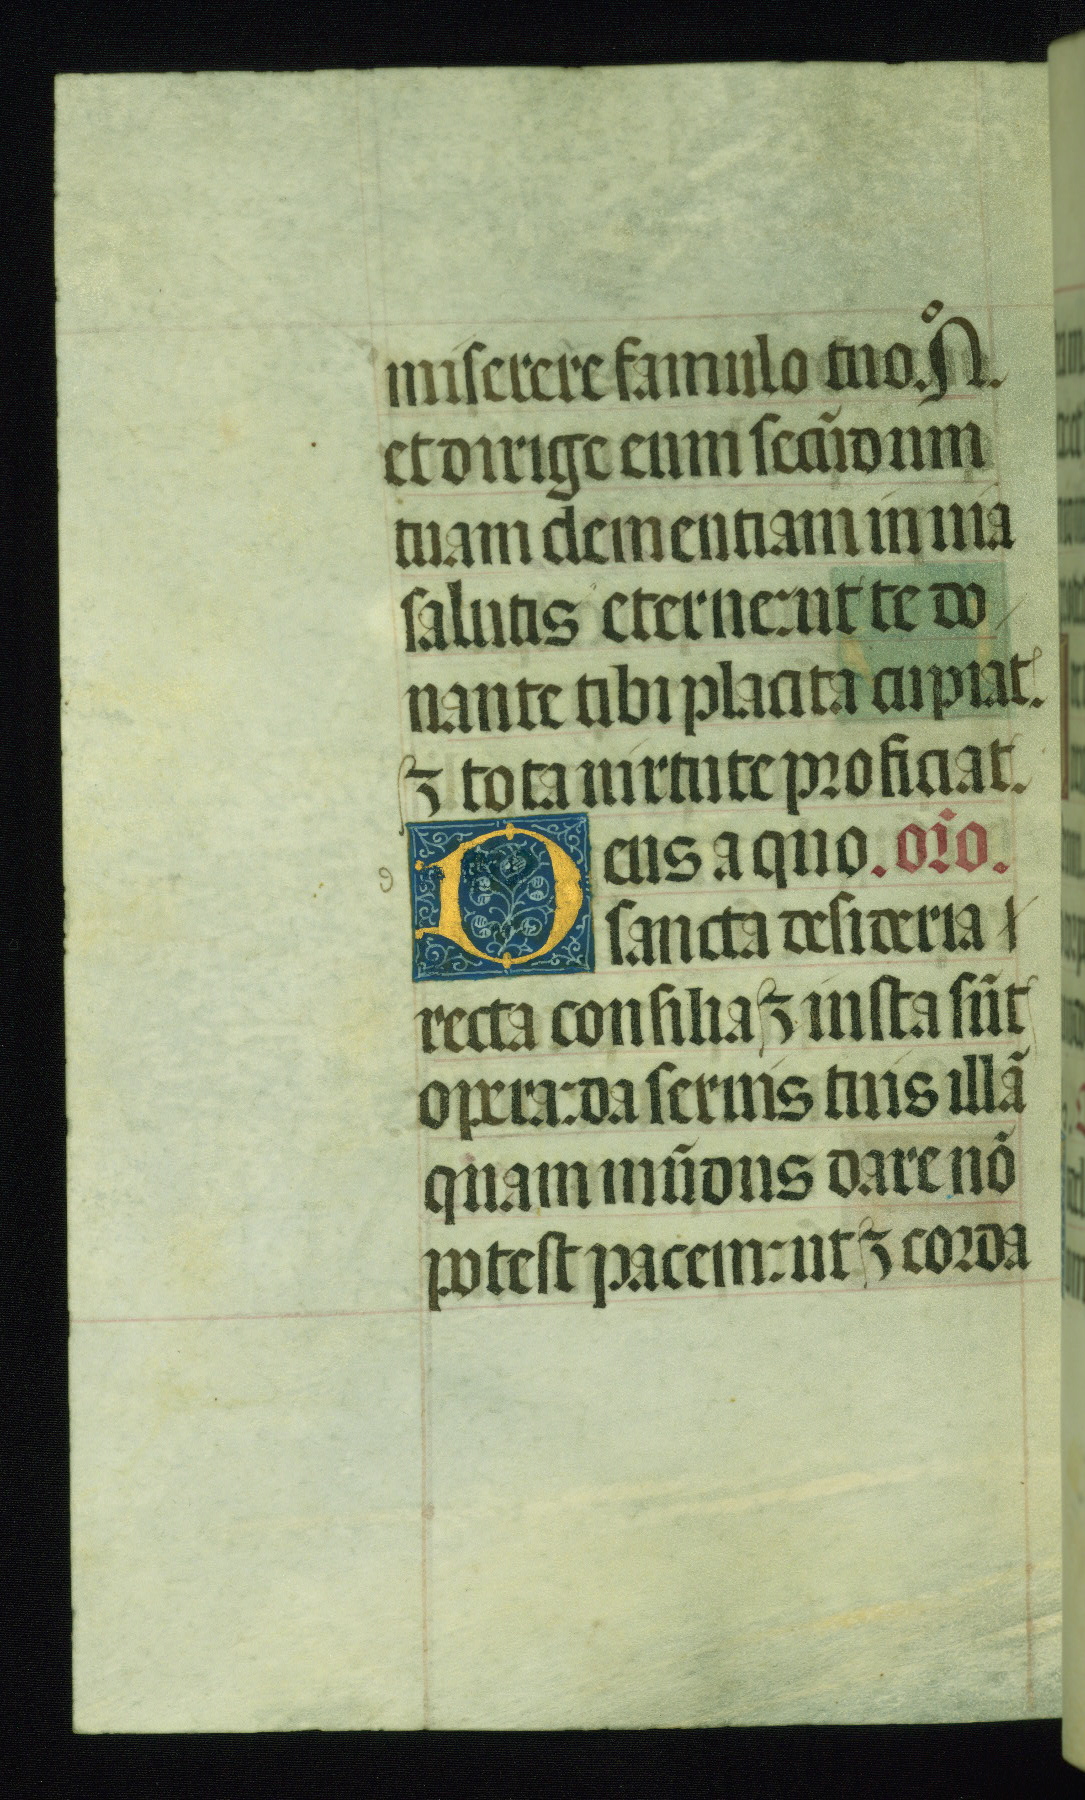 miserere famulo tuo. N̊.
et dirige eum secūdum
tuam clementiam in uia
salutis eterne: ut te do
nante tibi placita cupiat.
⁊ tota uirtute proficiat.
Deus a quo. or̄o.
sancta desideria /
recta consilia ⁊ iusta sūt
opera: da seruis tuis illā
quam mūdus dare nō
potest pacem: ut ⁊ corda